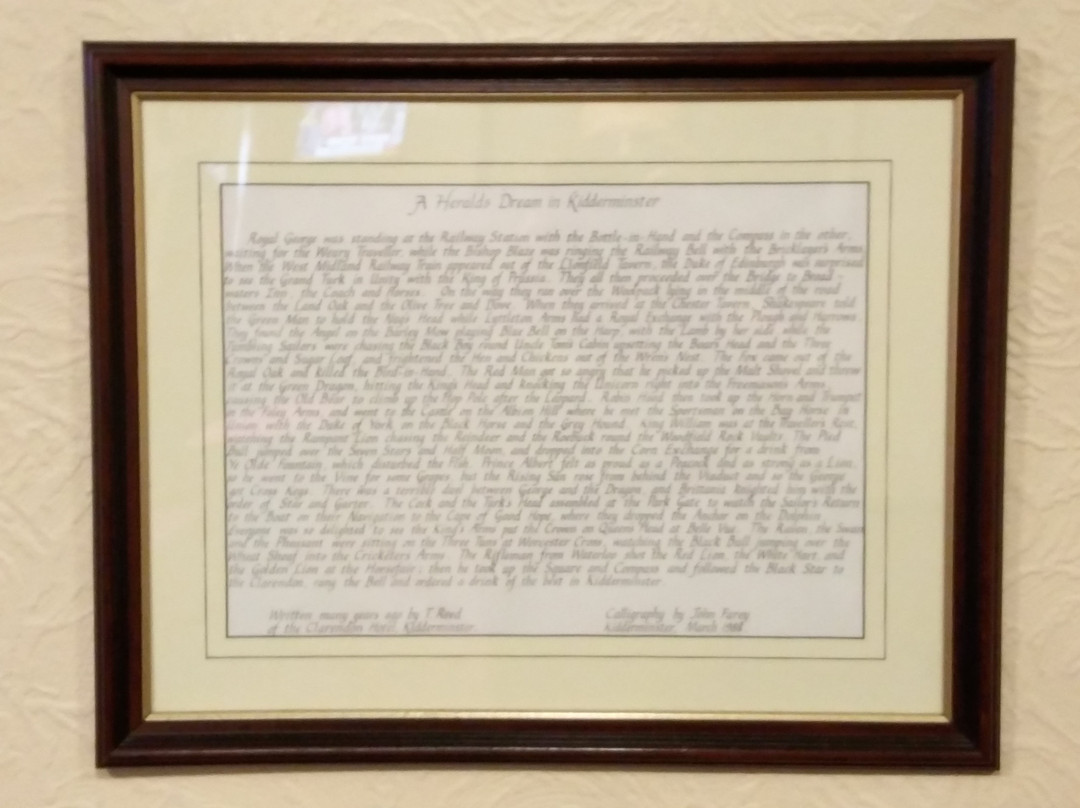 A Heralds Dream in Kidderminster
Royal George was standing at the Railway Station with the Bottle-in-Hand and the Compass in the other,
waiting for the Weary Traveller, while the Bishop Blaze was ringing the Railway Bell with the Bricklayers Arms.
When the West Midland Railway Train appeared out of the Tavern, the Duke of Edinburgh was surprised
to see the Grand Turk in Unity with the King of Prussia. They all then proceeded over the Bridge to Broad-
waters Inn, the Coach and Horses. On the way they ran over the lying in the middle of the road
between the Land Oak and the Olive Tree and Dove. When they arrived at the Chester Tavern, Shakespeare told
the Green Man to hold the Nags Head while Lyttleton Arms had a Royal Exchange with the Plough and Harrows
They found the Angel on the Barley Mow playing Blue Bell on the Harp, with the Lamb by her side while the
Rambling Sailors were chasing the Black Boy round Uncle Toms Cabin upsetting the Boars Head and the Three
Crowns and Sugar Loaf, and frightened the Hen and Chickens out of the Wrens Nest. The Fox came out of the
Royal Oak and killed the Bird-in-Hand. The Red Man got so angry that he picked up the Malt Shovel and threw
it at the Green Dragon, hitting the Kings Head and knocking the Unicorn right into the Freemasons Arms,
causing the Old Bear to climb up the Hop Pole after the Leopard. Robin Hood then took up the Horn and Trumpet
in the Foley Arms, and went to the Castle on the Albion Hill where he met the Sportsman on the Bay Horse in
Union with the Duke of York on the Black Horse and the Grey Hound. King William was at the Travellers Rest,
watching the Rampant Lion chasing the Reindeer and the Roebuck round the Woodfield Rock Vaults. The Pied
Bull jumped over the Seven Stars and Half Moon, and dropped into the Corn Exchange for a drink from
Ye Olde Fountain, which disturbed the Fish. Prince Albert felt as proud as a Peacock and as strong as a Lion,
so he went to the Vine for some Grapes, but the Rising Sun rose from behind the Viaduct and so the George
got Cross Keys. There was a terrible duel between George and the Dragon, and Brittania knighted him with the
order of Star and Garter. The Cask and the Turks Head assembled at the Park Gate to watch the Sailors Return
to the Boat on their Navigation to the Cape of Good Hope, where they dropped the Anchor on the Dolphin
Everyone was so delighted to see the King's Arms put the Crown on Queens Head at Belle Vue. The Raven, the Swan
and the Pheasant were sitting on the Three Tuns at Worcester Cross, watching the Black Bull jumping over the
Wheat Sheaf into the Cricketers Arms. The Rifleman from Waterloo shot the Red Lion, the White Hart, and
the Golden Lion at the Horsefair; then he took up the Square and Compass and followed the Black Star to
the Clarendon, rang the Bell and ordered a drink of the best in Kidderminster
Written many years ago by T. Reed
of the Clarendon Hotel, Kidderminster.
Calligraphy by John Farey
Kidderminster, March